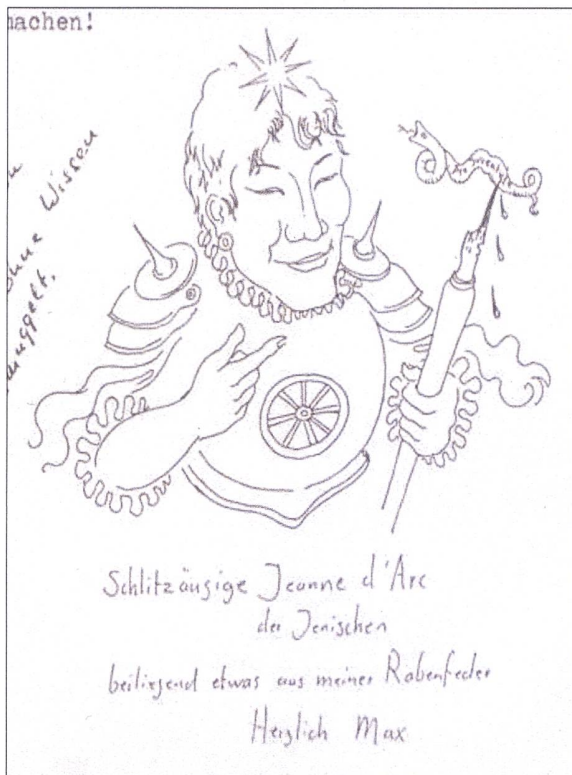 machen!
ohne Wissen
Schlitzäugige Jeanne d'Arc
der Jenischen
beiliegend etwas aus meiner Rabenfeder
Herzlich Max